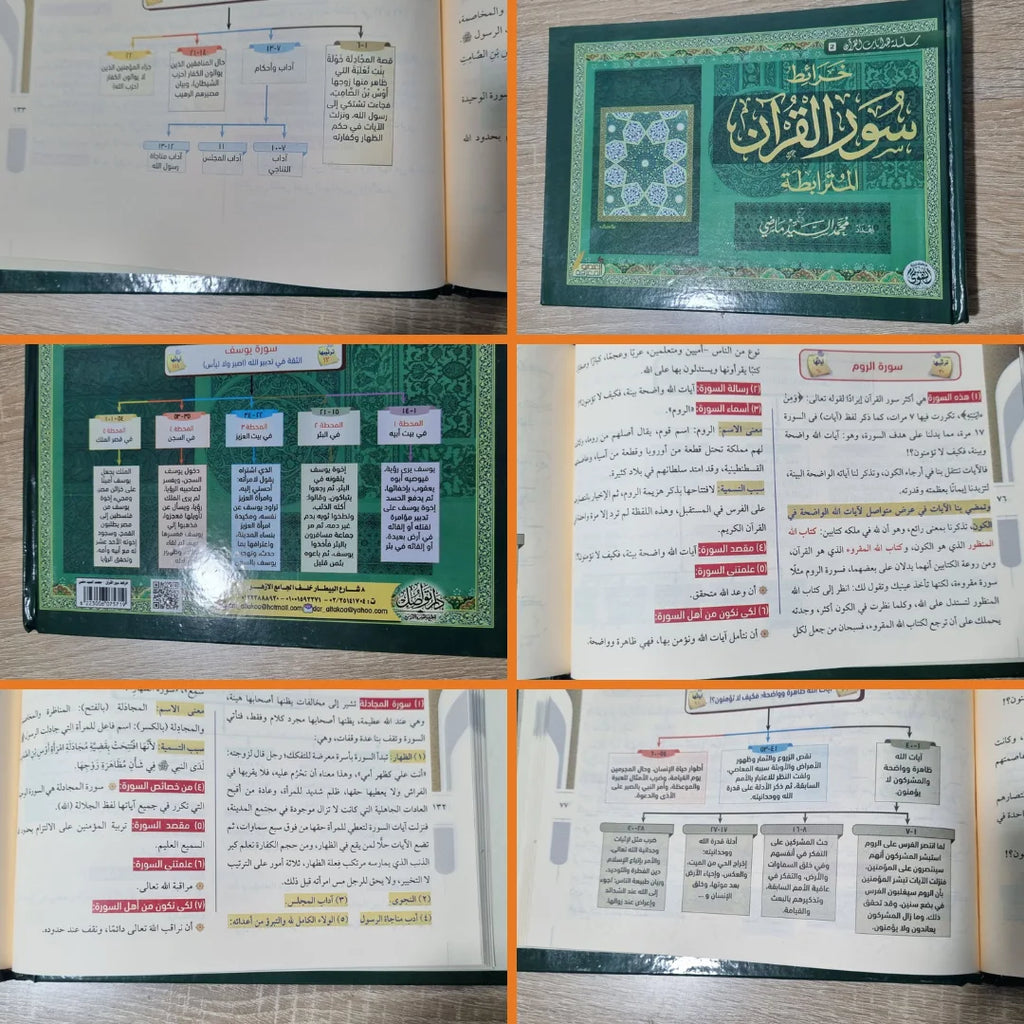 والمخاصمة،
الرسول ﷺ
بن الصامت
سورة الوحيدة
بحدود الله
١٣٣
٦-١
قصة المجادلة خولة
بنت ثعلبة التي
ظاهر منها زوجها
أوس بن الصامت،
فجاءت تشتكي إلى
رسول الله، ونزلت
الآيات في حكم
الظهار وكفارته
١٣-٧
آداب وأحكام
٢١-١٤
حال المنافقين الذين
يوالون الكفار (حزب
الشيطان)، وبيان
مصيرهم الرهيب
٢٢
جزاء المؤمنين الذين
لا يوالون الكفار
(حزب الله)
١٠-٧
آداب
التناجي
١١
آداب المجلس
١٣-١٢
آداب مناجاة
رسول الله
سلسلة هدايات القرآن ٢
خرائط
سور القرآن
المترابطة
إعداد
محمد السيد ماضي
سورة يوسف
ترتيبها
١٢
آياتها
١١١
الثقة في تدبير الله (اصبر ولا تيأس)
١٤-١
المحطة ١
في بيت أبيه
يوسف يرى رؤية،
فيوصيه أبوه
يعقوب بإخفائها،
ثم يدفع الحسد
إخوة يوسف على
تدبير مؤامرة
لقتله أو إلقائه
في أرض بعيدة،
أو إلقائه في بئر
٢١-١٥
المحطة ٢
في البئر
إخوة يوسف
يلقونه في
البئر، ثم رجعوا
يتباكون، وقالوا:
أكله الذئب،
ولطخوا ثوبه بدم
غير دمه، ثم مر
جماعة مسافرون
بالبئر فأخذوا
يوسف، ثم باعوه
بثمن قليل
٣٤-٢٢
المحطة ٣
في بيت العزيز
الذي اشتراه
يقول لامرأته:
أحسني إليه،
وامرأة العزيز
تراود يوسف عن
نفسه، ومكيدة
امرأة العزيز
بنساء المدينة،
واعترافها بما
حدث، وتهدد
يوسف بالسجن
٥٣-٣٥
المحطة ٤
في السجن
دخول يوسف
السجن، ويفسر
لصاحبيه الرؤيا،
ثم يرى الملك
رؤيا، ويسأل عن
تأويلها
١٠١-٥٤
المحطة ٥
في قصر الملك
الملك يجعل
يوسف أمينًا
على خزائن مصر
ومجيء إخوة
يوسف من
فلسطين إلى
مصر يطلبون
القمح، وسجود
إخوته الأحد عشر
له مع أبيه وأمه،
وتحقق الرؤيا
٨ شارع البيطار خلف الجامع الأزهر
ت: ٠٢/٢٥١٤١٧٠٤
dar_altakoa@yahoo.com
سورة الروم
ترتيبها
٣٠
آياتها
٦٠
(١) هذه السورة: هي أكثر سور القرآن إيرادًا لقوله تعالى: ﴿وَمِنْ
آيَاتِهِ﴾، تكررت فيها ٧ مرات، كما ذكر لفظ (آيات) في السورة
١٧ مرة، مما يدلنا على هدف السورة، وهو: آيات الله واضحة
وبينة، فكيف لا تؤمنون؟!
فالآيات تنتقل بنا في أرجاء الكون، وتذكر لنا آياته الواضحة البينة،
لتزيدنا إيمانًا بعظمته وقدرته.
وتمضي بنا الآيات في عرض متواصل لآيات الله الواضحة في
الكون، تذكرنا بمعنى رائع، وهو أن لله في ملكه كتابين: كتاب الله
المنظور الذي هو الكون، وكتاب الله المقروء الذي هو القرآن،
ومن روعة الكتابين أنهما يدلان على بعضهما، فسورة الروم مثلًا
سورة مقروءة، لكنها تأخذ عينيك وتقول لك: انظر إلى كتاب الله
المنظور لتستدل على الله، وكلما نظرت في الكون أكثر، وجدته
يحملك على أن ترجع لكتاب الله المقروء، فسبحان من جعل لكل
٧٦
نوع من الناس -أميين ومتعلمين، عربًا وعجمًا،
كتبًا يقرأونها ويستدلون بها على الله.
(٢) رسالة السورة: آيات الله واضحة بينة، فكيف لا تؤمنون؟!
(٣) أسماء السورة: «الروم».
معنى الاسم: الروم: اسم قوم، يقال أصلهم من روما،
لهم مملكة تحتل قطعة من أوروبا وقطعة من آسيا،
القسطنطينية، وقد امتد سلطانهم في بلاد كثيرة.
سبب التسمية: لافتتاحها بذكر هزيمة الروم، ثم الإخبار
على الفرس في المستقبل، وهذه اللفظة لم ترد إلا مرة واحدة
القرآن الكريم.
(٤) مقصد السورة: آيات الله واضحة بينة، فكيف لا تؤمنون؟
(٥) علمتني السورة:
أن وعد الله متحقق.
(٦) لكي نكون من أهل السورة:
أن نتأمل آيات الله ونؤمن بها، فهي ظاهرة وواضحة.
(١) سورة المجادلة تشير إلى مخالفات يظنها أصحابها هينة،
وهي عند الله عظيمة، يظنها أصحابها مجرد كلام وفقط، فتأتي
السورة وتقف بنا عدة وقفات، وهي:
(١) الظهار: تبدأ السورة بأسرة معرضة للتفكك؛ رجل قال لزوجته:
«أنت علي كظهر أمي»، وهذا معناه أن تحرم عليه، فلا يقربها في
الفراش ولا يعطيها حقها، ظلم شديد للمرأة، وعادة من أقبح
العادات الجاهلية التي كانت لا تزال موجودة في مجتمع المدينة،
فنزلت آيات السورة لتعطي للمرأة حقها من فوق سبع سماوات، ثم
تضع الآيات حلًّا لمن يقع في الظهار، ومن حجم الكفارة تعلم كبر
الذنب الذي يمارسه مرتكب فعلة الظهار، ثلاثة أمور على الترتيب
لا التخيير، ولا يحق للرجل مس امرأته قبل ذلك.
(٢) النجوى. (٣) آداب المجلس.
(٤) أدب مناجاة الرسول (٥) الولاء الكامل لله والتبرؤ من أعدائه:
١٣٢
معنى الاسم: المجادلة (بالفتح): المناظرة
والمجادلة (بالكسر): اسم فاعل للمرأة التي جادلت
سبب التسمية: لأنها افتتحت بقضية مجادلة امرأة أوس بن
لدى النبي ﷺ في شأن مظاهرة زوجها.
(٤) من خصائص السورة: سورة المجادلة هي السورة
التي تكرر في جميع آياتها لفظ الجلالة (الله).
(٥) مقصد السورة: تربية المؤمنين على الالتزام
السميع العليم.
(٦) علمتني السورة:
مراقبة الله تعالى.
(٧) لكي نكون من أهل السورة:
أن نراقب الله تعالى دائمًا، ونقف عند حدوده.
آيات الله ظاهرة وواضحة: فكيف لا تؤمنون؟!
٤٠-١
آيات الله
ظاهرة وواضحة
والمشركون لا
يؤمنون.
٥٣-٤١
نقص الزروع والثمار وظهور
الأمراض والأوبئة سببه المعاصي،
ولفت النظر للاعتبار بالأمم
السابقة، ثم ذكر الأدلة على قدرة
الله ووحدانيته.
٦٠-٥٤
أطوار حياة الإنسان، وحال المجرمين
يوم القيامة، وضرب الأمثال للعبرة
والموعظة، وأمر النبي بالصبر على
الأذى والدعوة.
٧-١
لما انتصر الفرس على الروم
استبشر المشركون أنهم
سينتصرون على المؤمنين،
فنزلت الآيات تبشر المؤمنين
بأن الروم سيغلبون الفرس
في بضع سنين، وقد تحقق
ذلك، وما زال المشركون
يعاندون ولا يؤمنون.
١٦-٨
حث المشركين على
التفكر في أنفسهم
وفي خلق السماوات
والأرض، والتفكر في
عاقبة الأمم السابقة،
وتذكيرهم بالبعث
والقيامة.
٢٧-١٧
أدلة قدرة الله
ووحدانيته:
إخراج الحي من الميت،
والعكس، وإحياء الأرض
بعد موتها، وخلق
الإنسان و ...
٤٠-٢٨
ضرب مثل لإثبات
وحدانية الله تعالى،
والأمر باتباع الإسلام
دين الفطرة والتوحيد،
وبيان طبيعة الناس: لجوء
إلى الله عند الشدائد
وإعراض عند زوالها.
٧٧